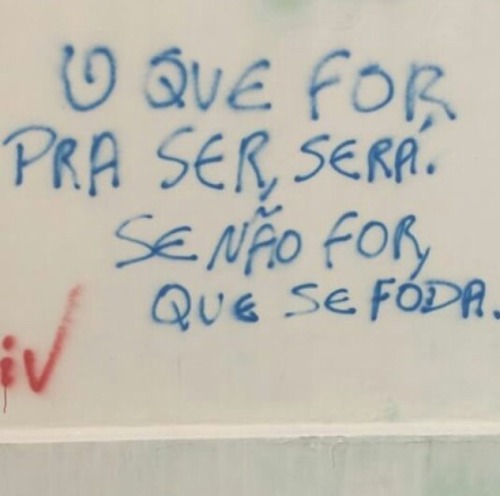 O QUE FOR
PRA SER, SERÁ.
SE NÃO FOR,
QUE SE FODA.
iv